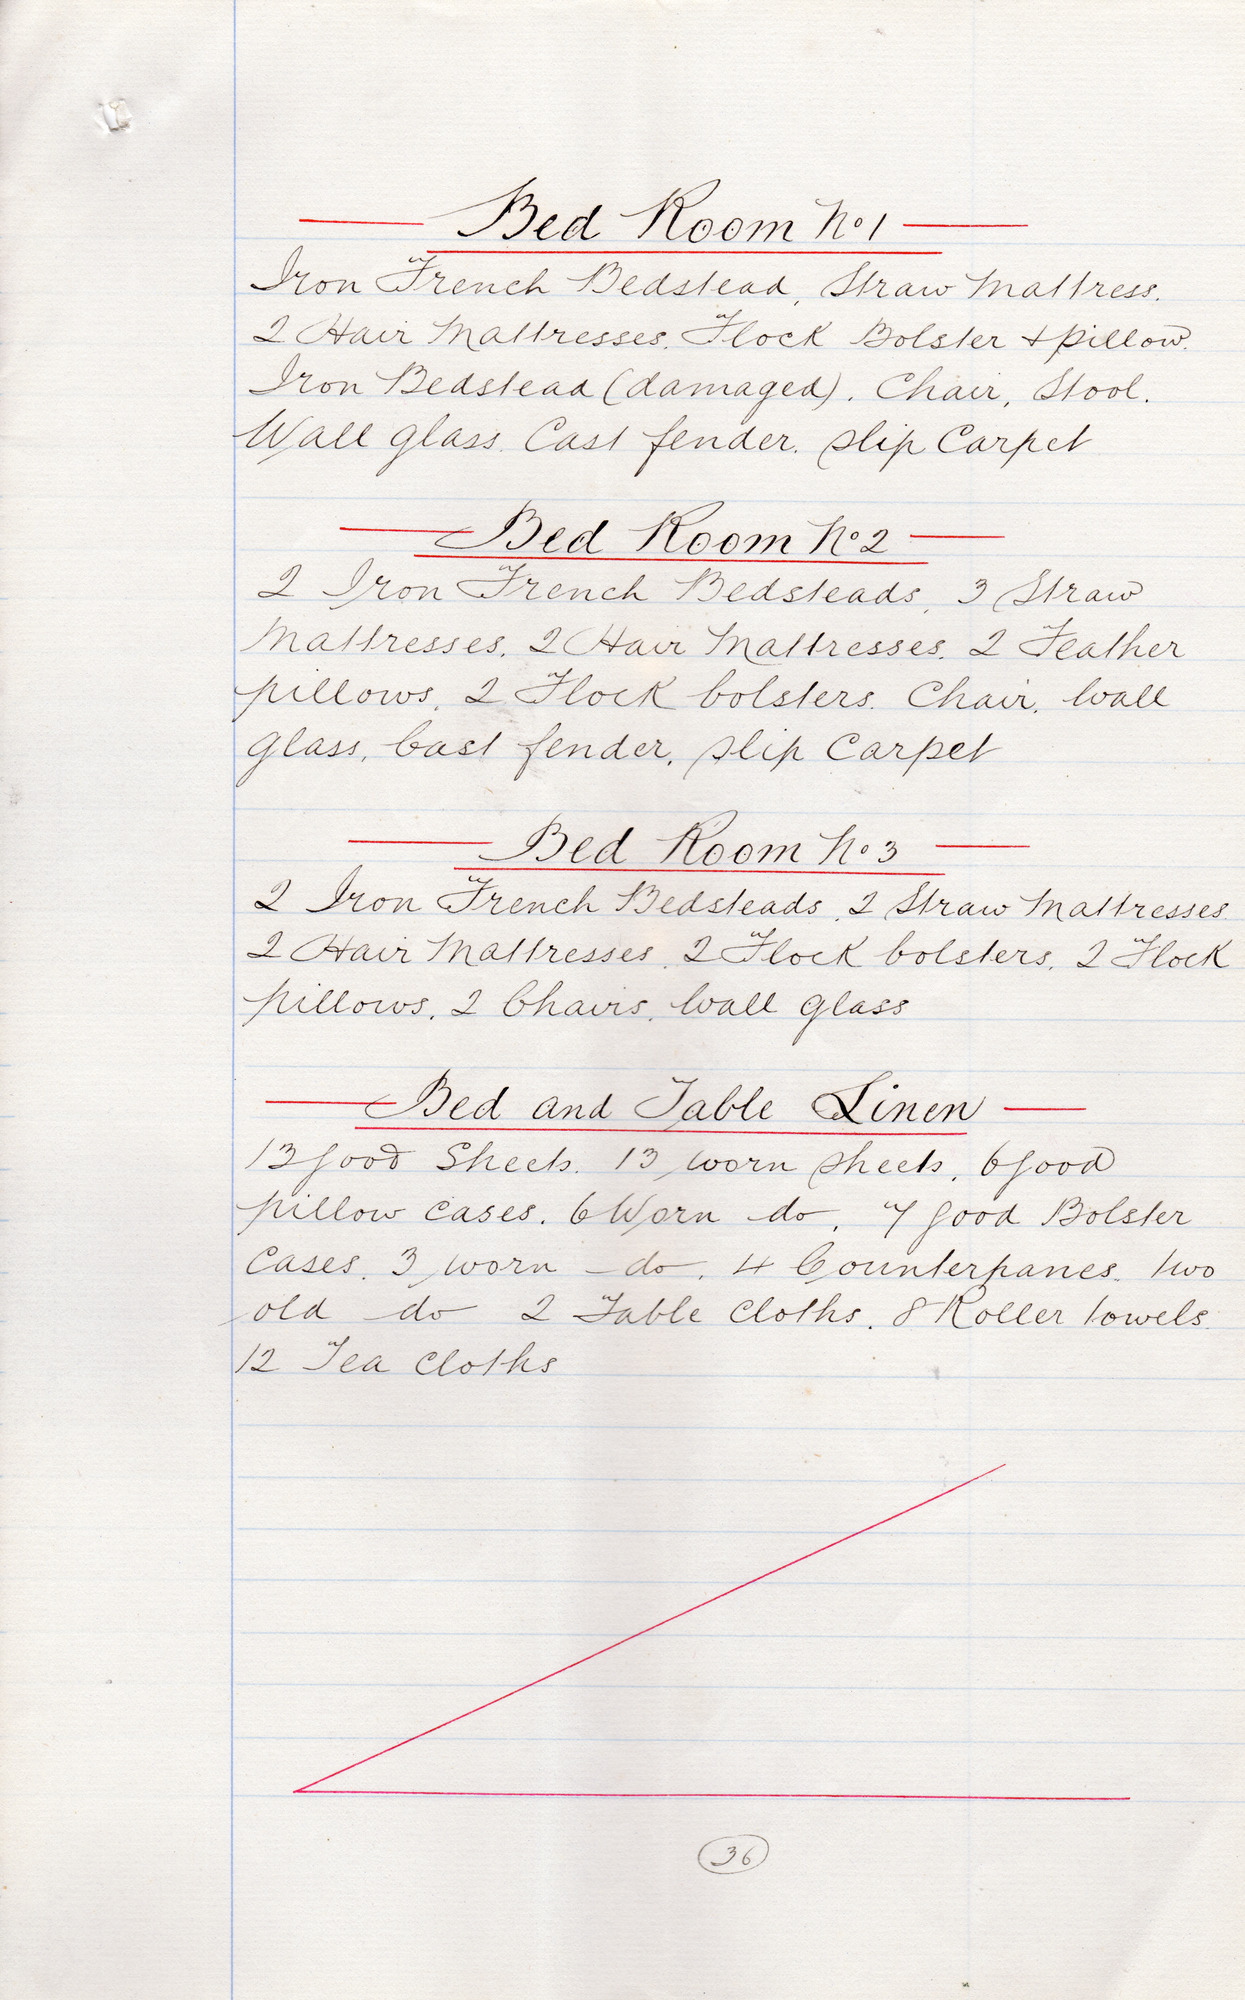 Bed Room No 1
Iron French Bedstead, Straw Mattress.
2 Hair Mattresses. Flock Bolster & pillow.
Iron Bedstead (damaged). Chair, Stool.
Wall glass. Cast fender. slip Carpet
Bed Room No 2
2 Iron French Bedsteads, 3 Straw
Mattresses, 2 Hair Mattresses, 2 Feather
pillows, 2 Flock bolsters. Chair, Wall
glass, Cast fender, slip Carpet
Bed Room No 3
2 Iron French Bedsteads, 2 Straw Mattresses
2 Hair Mattresses, 2 Flock bolsters, 2 Flock
pillows, 2 Chairs, Wall glass
Bed and Table Linen
13 good Sheets. 13 worn sheets, 6 good
pillow cases. 6 Worn do, 7 good Bolster
Cases, 3 worn do, 4 Counterpanes, two
old do 2 Table Cloths, 8 Roller towels.
12 Tea Cloths
36